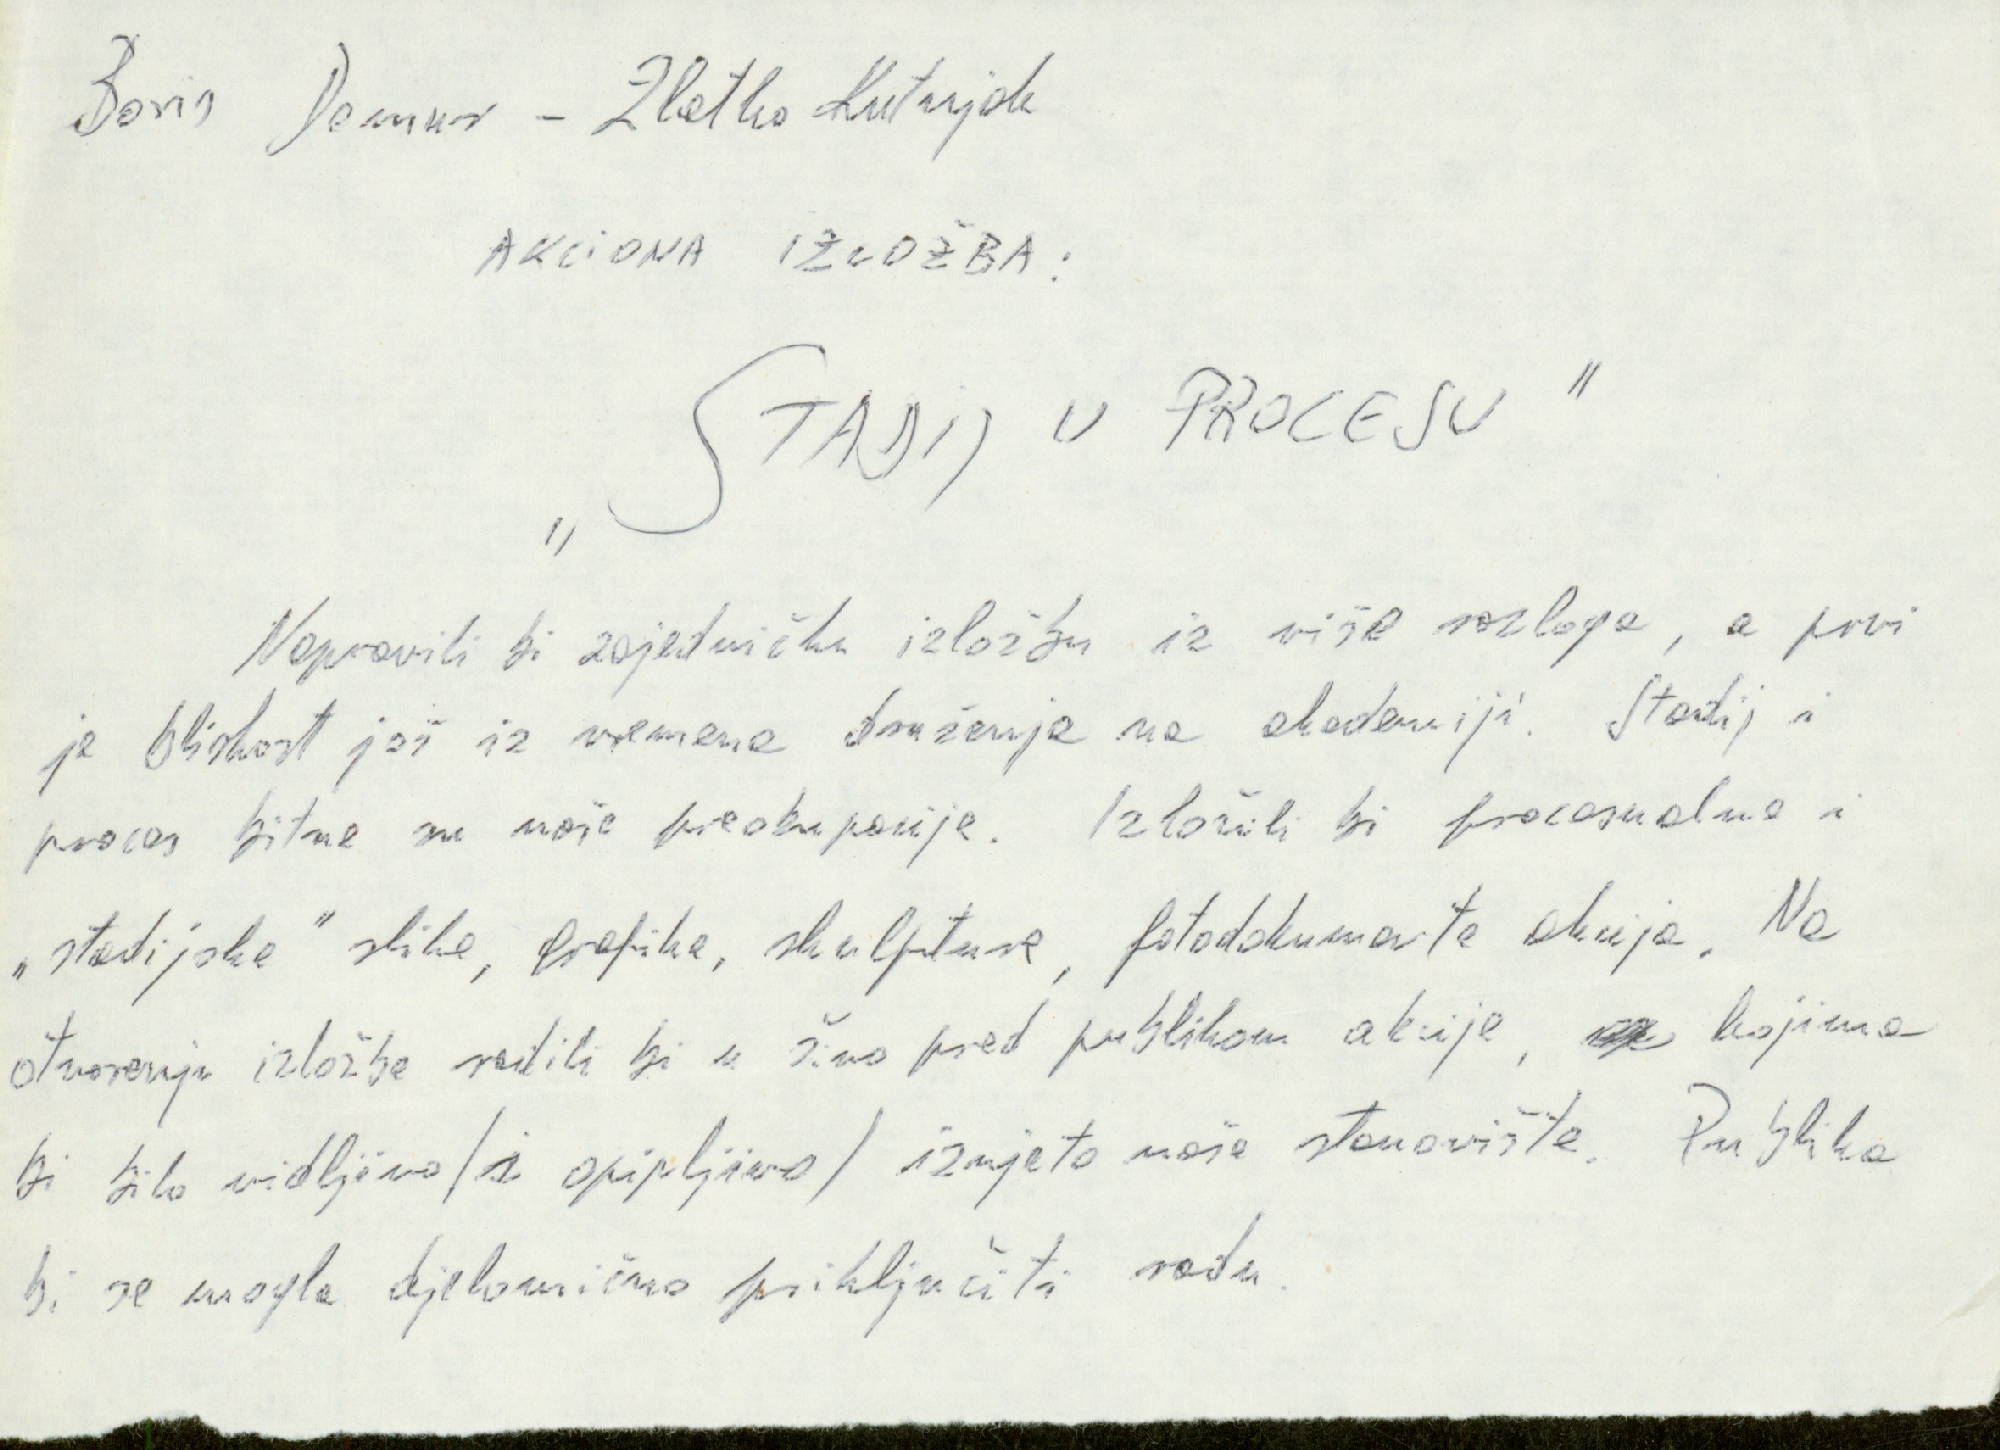 Boris Demur - Zlatko Kutnjak
AKCIONA IZLOŽBA:
„STADIJ U PROCESU"
Napravili bi zajedničku izložbu iz više razloga, a prvi
je bliskost još iz vremena druženja na akademiji. Stadij i
proces bitne su naše preokupacije. Izložili bi procesualne i
„stadijske" slike, grafike, skulpture, fotodokumente akcija. Na
otvorenju izložbe radili bi u živo pred publikom akcije, kojima
bi bilo vidljivo /i opipljivo/ iznjeto naše stanovište. Publika
bi se mogla djelomično priključiti radu.